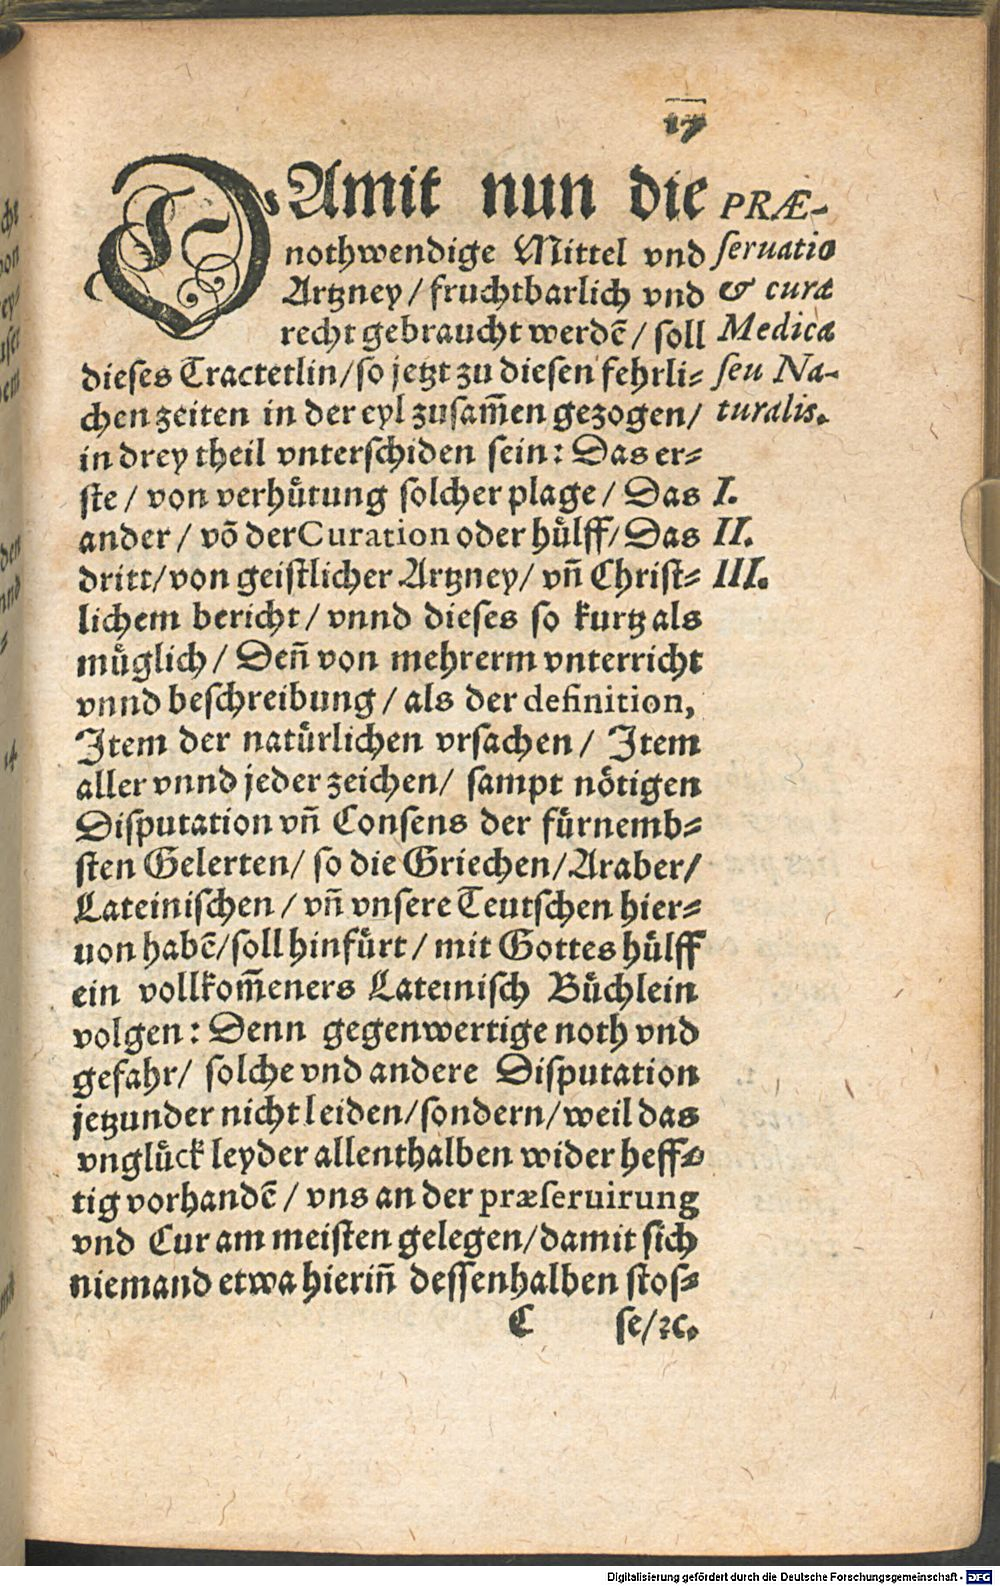 17
DAmit nun die
nothwendige Mittel vnd
Artzney / fruchtbarlich vnd
recht gebraucht werdē / soll
dieses Tractetlin / so jetzt zu diesen fehrli⸗
chen zeiten in der eyl zusam̄en gezogen /
in drey theil vnterschiden sein: Das er⸗
ste / von verhuͤtung solcher plage / Das
ander / võ der Curation oder huͤlff / Das
dritt / von geistlicher Artzney / vn̄ Christ⸗
lichem bericht / vnnd dieses so kurtz als
muͤglich / Den̄ von mehrerm vnterricht
vnnd beschreibung / als der definition,
Item der natuͤrlichen vrsachen / Item
aller vnnd jeder zeichen / sampt noͤtigen
Disputation vn̄ Consens der fuͤrnemb⸗
sten Gelerten / so die Griechen / Araber /
Lateinischen / vn̄ vnsere Teutschen hier⸗
uon habē / soll hinfuͤrt / mit Gottes huͤlff
ein vollkom̄eners Lateinisch Buͤchlein
volgen: Denn gegenwertige noth vnd
gefahr / solche vnd andere Disputation
jetzunder nicht leiden / sondern / weil das
vngluͤck leyder allenthalben wider heff⸗
tig vorhandē / vns an der præseruirung
vnd Cur am meisten gelegen / damit sich
niemand etwa hierin̄ dessenhalben stos⸗
C se / ꝛc.
PRÆ-
seruatio
& curæ
Medicæ
seu Na-
turalis.
I.
II.
III.
14
Digitalisierung gefördert durch die Deutsche Forschungsgemeinschaft - DFG